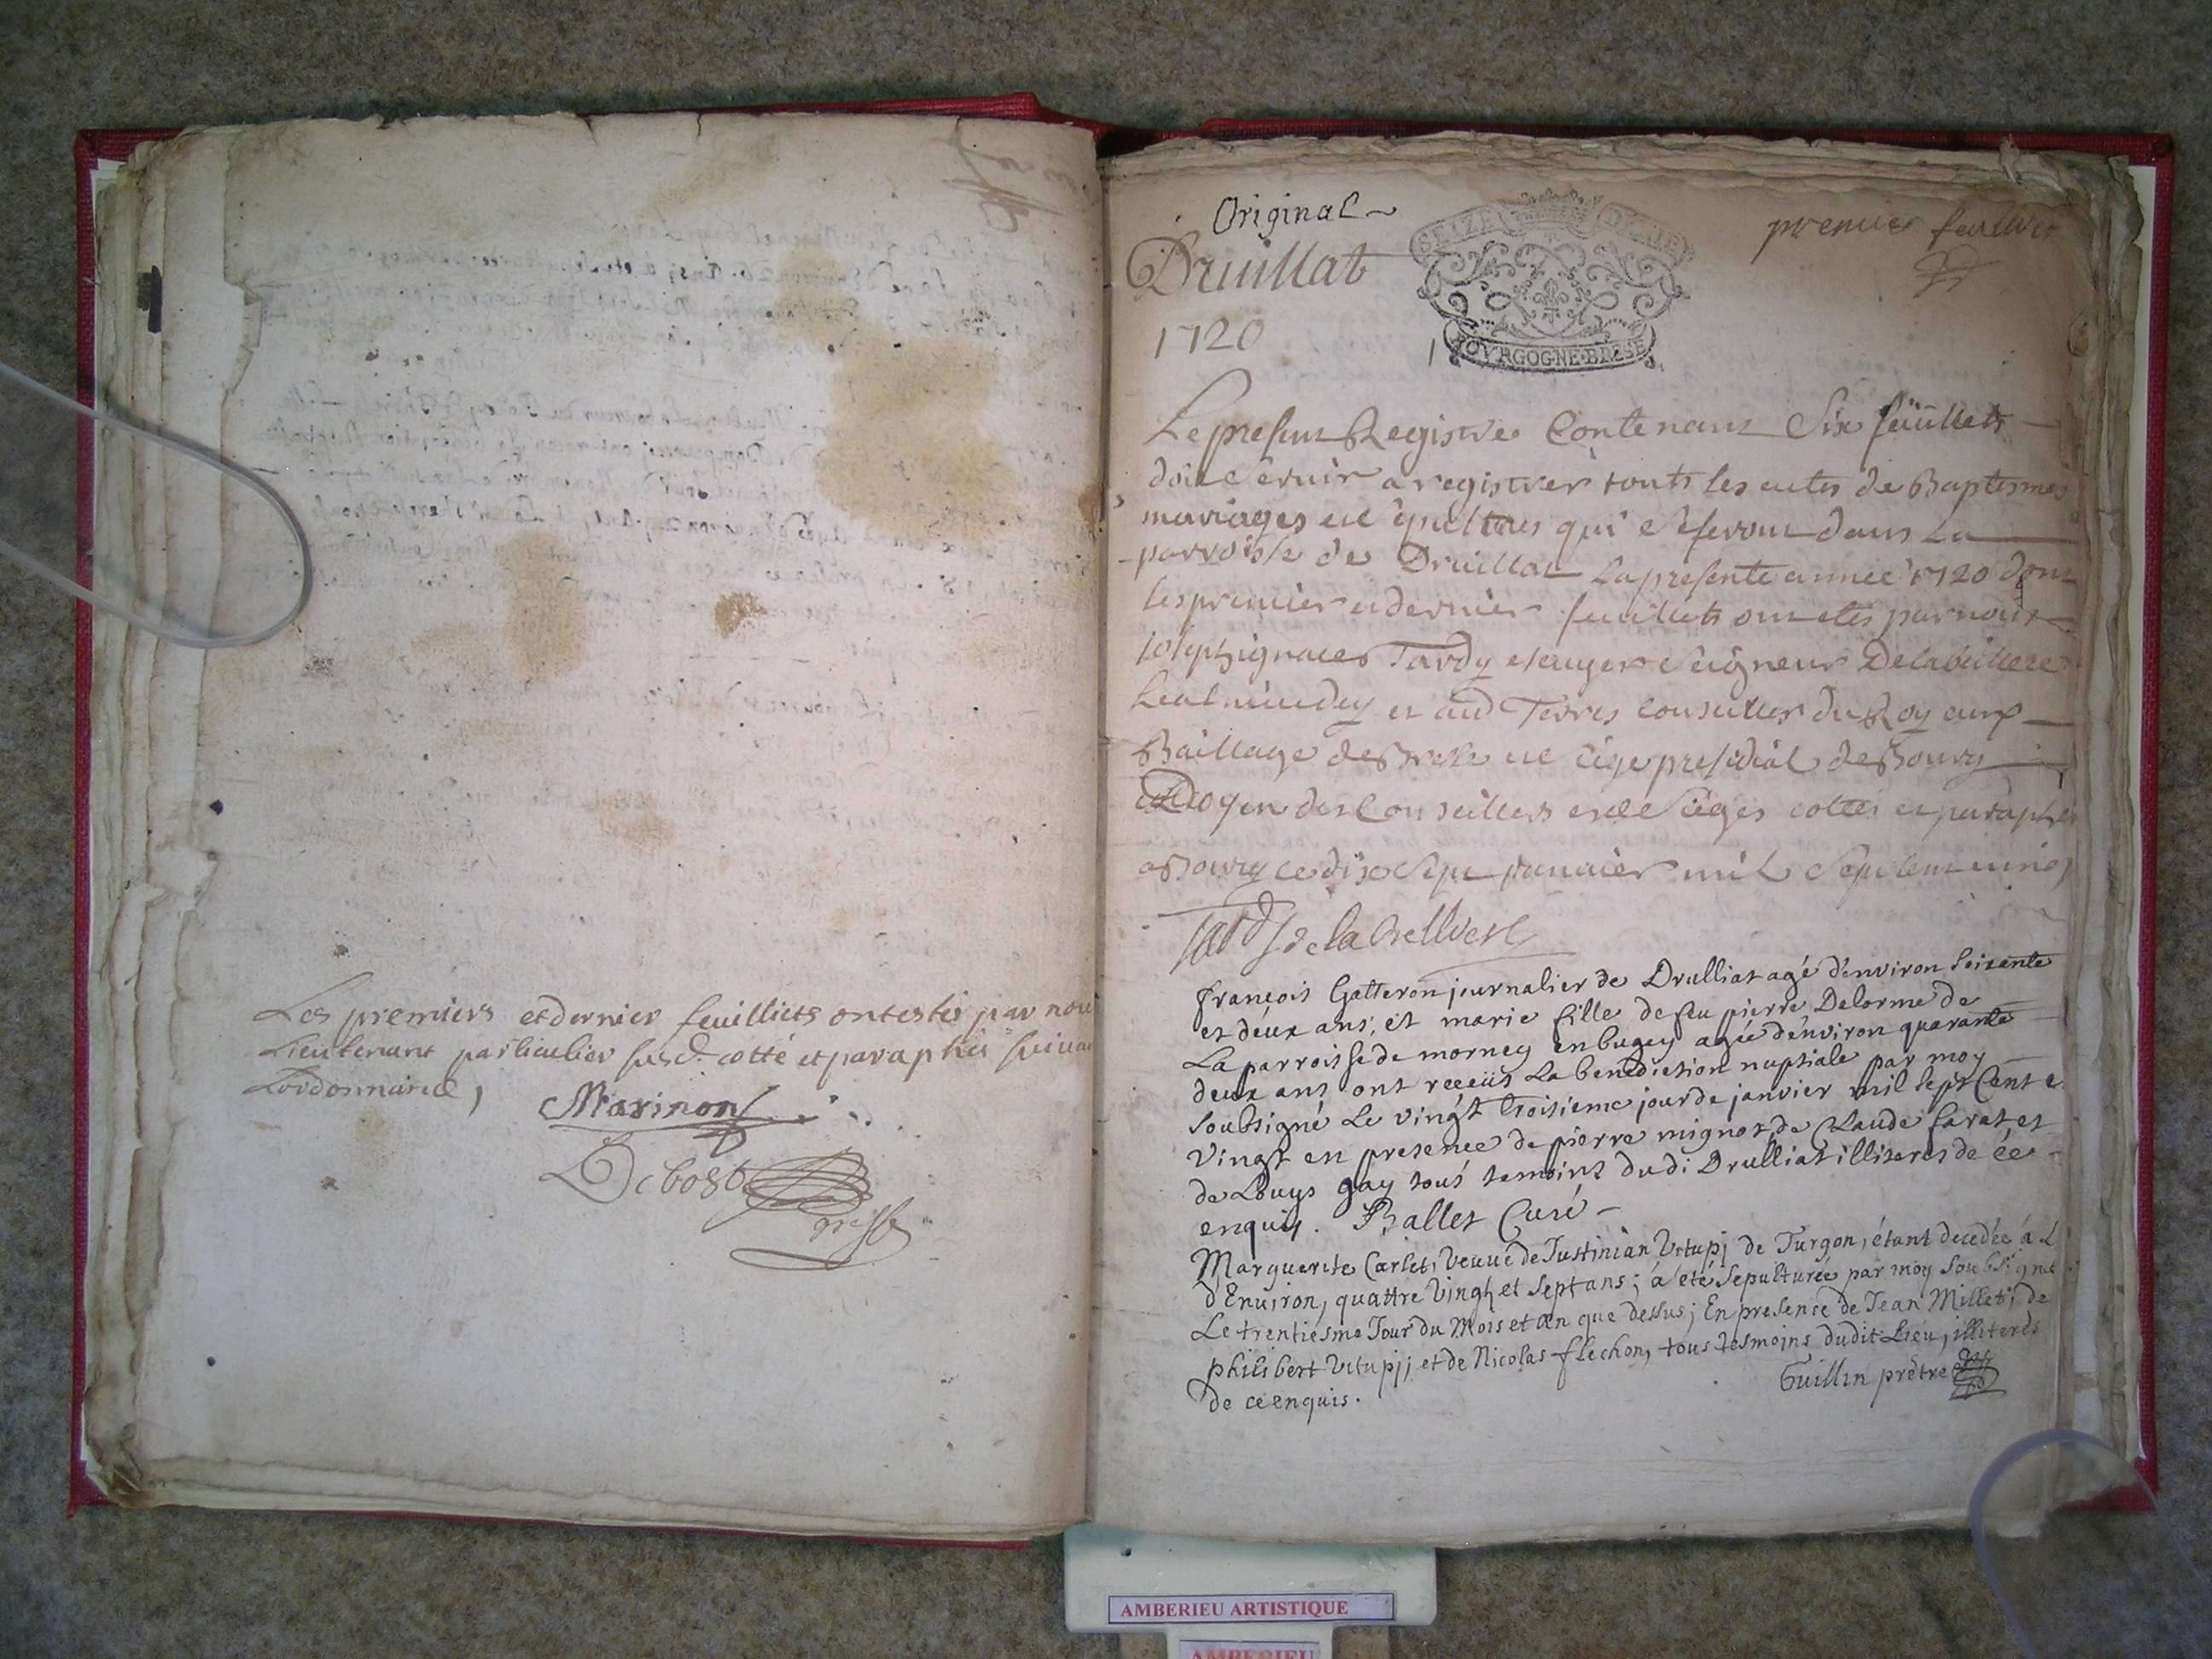 Les premiers et dernier feuilliets ont estés par nou
Lieutenant particulier susd. cotté et paraphés suivan
Lordonnance,
Marinon
Debost
greff
Original
premier feuillet
Druillat
1720
SEIZE DENIERS
BOURGOGNE·BRESSE
Le present Registre Contenant Six feuillets
doit Servir a registrer touts les actes de Baptesmes
mariages et Sepultures qui se feront dans La
parroisse de Druillat La presente année 1720 dont
les premier et dernier feuillets ont etés par nous
Joseph ignace Tardy escuyer Seigneur De la
et aud Terres Conseiller du Roy aux
Bailliage de Bresse et Siege presidial de Bourg
Doyen des Conseillers esd Sieges cottés et paraphés
a Bourg ce dix Sept Janvier mil Sept cent vingt
Tardy de la
françois Gatteron journalier de Drulliat agé d'environ soixante
et deux ans, et marie fille de feu pierre Delorme de
La parroisse de morney en bugey agée d'environ quarante
deux ans ont receüs La benediction nuptiale par moy
soubsigné Le vingt troisieme jour de janvier mil sept Cent e
Vingt en presence de pierre mignot de Claude farat et
de Louys gay tous temoins dudi Drulliat illiteres de ce
enquis. Ballet Curé
Marguerite Carlet, veuve de Justinian Vitupj de Turgon, étant decedée á L
d'Environ, quattre Vingt et Sept ans; á été Sepulturée par moy Soubsigné
Le trentiésme Jour du Mois et an que dessus; En presence de Jean Millet, de
philibert Vitupj; et de Nicolas flechon, tous tesmoins dudit Lieu, illiterés
de ce enquis.
Guillin prêtre
AMBERIEU ARTISTIQUE
AMBERIEU